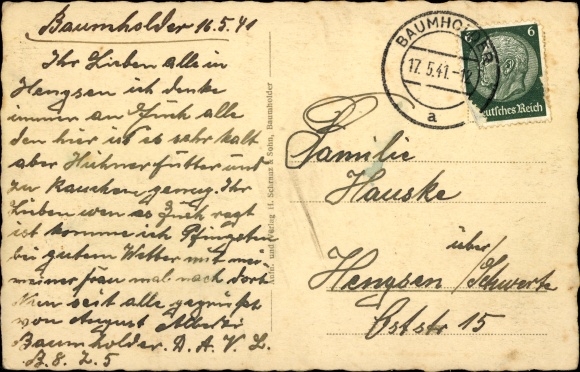 Baumholder 16.5.41
Ihr Lieben alle in
Hengsen ich denke
immer an Euch alle
den hier ist es sehr kalt
aber Hühnerfutter und
zu Rauchen genug. Ihr
Lieben wen es Euch recht
ist komme ich Pfingsten
bei gutem Wetter mit
meiner Frau mal nach dort
Nun seit alle gegrüßt
von August
Baumholder. D. A. V. L.
B. 8. Z. 5
Aufn. und Verlag H. Schmuz & Sohn, Baumholder
BAUMHOLDER
17.5.41.-12
a
6
Deutsches Reich
Familie
Hauske
über
Hengsen/Schwerte
Oststr 15